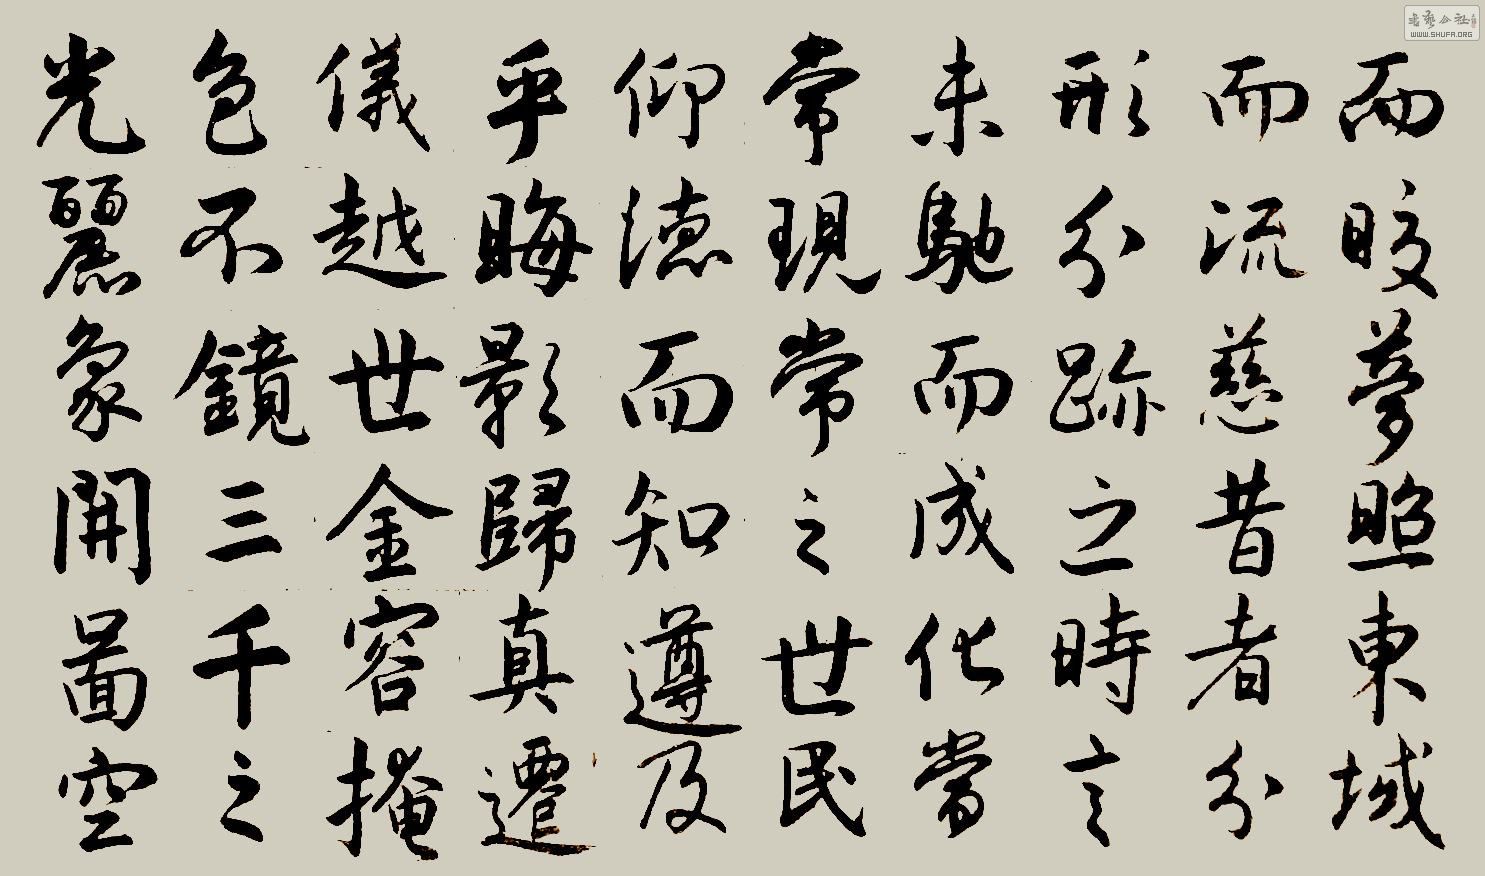 而皎夢照東域
而流慈昔者分
形分跡之時言
未馳而成化當
常現常之世民
仰德而知遵及
乎晦影歸真遷
儀越世金容掩
色不鏡三千之
光麗象開圖空
書藝公社
WWW.SHUFA.ORG